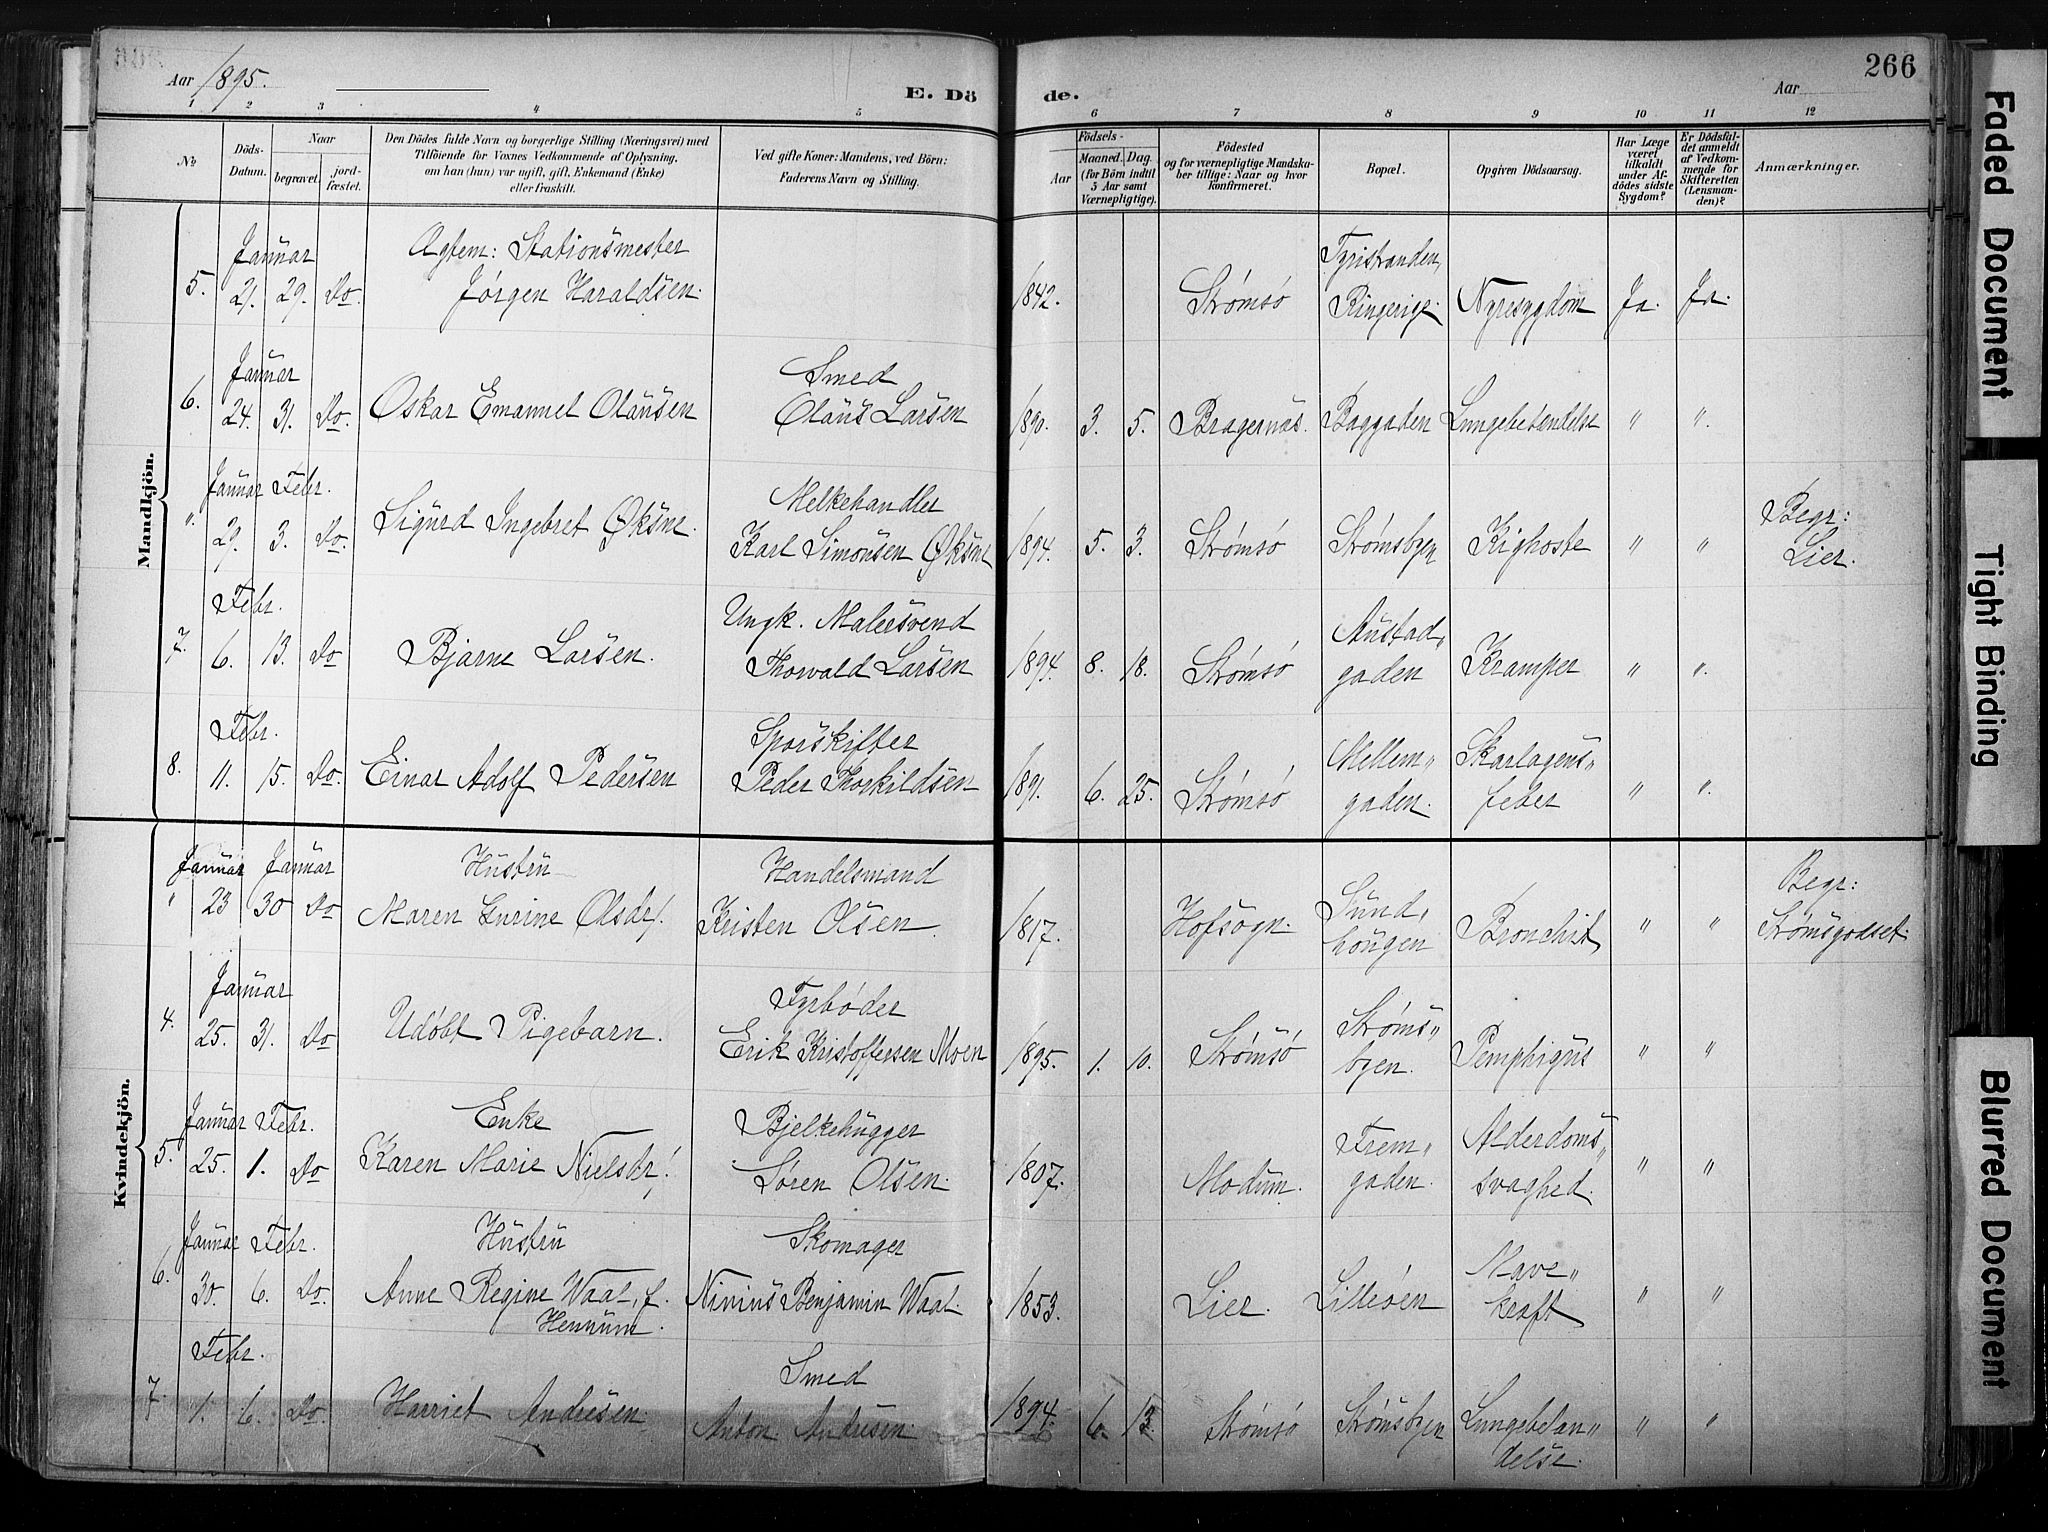 Aar 1895.
E. Döde.
Aar
266
1 2 3 4 5 6 7 8 9 10 11 12
No
Döds-Datum.
Naar
begravet.
jordfæstet.
Den Dödes fulde Navn og borgerlige Stilling (Næringsvei) med
Tilföiende for Voxnes Vedkommende af Oplysning,
om han (hun) var ugift, gift, Enkemand (Enke)
eller fraskilt.
Ved gifte Koner: Mandens, ved Börn:
Faderens Navn og Stilling.
Födsels-
Aar
Maaned. Dag.
(for Börn indtil
5 Aar samt
Værnepligtige).
Födested
og for værnepligtige Mandskaber
tillige: Naar og hvor
konfirmeret.
Bopæl.
Opgiven Dödsaarsag.
Har Læge
været
tilkaldt
under Afdödes
sidste
Sygdom?
Er Dödsfaldet
anmeldt
af Vedkommende
for
Skifteretten
(Lensmanden)?
Anmærkninger.
Mandkjön.
Januar Agtem: Stationsmester Tyristranden,
5. 21. 29. Do. Jørgen Haraldsen. 1842. Strømsø Ringerige. Nyresygdom Ja. Ja.
Januar Smed
6. 24. 31. Do. Oskar Emanuel Olausen Olaus Larsen 1890. 3. 5. Bragernæs. Baggaden Lungebetændelse " ".
Januar Febr. Melkehandler Begr:
". 29. 3. Do. Sigurd Ingebret Øksne. Karl Simonsen Øksne 1894. 5. 3. Strømsø Strømsbyen Kighoste " " Lier.
Febr. Ungk. Malersvend Austad"
7. 6. 13. Do Bjarne Larsen. Thorvald Larsen 1894. 8. 18. Strømsø gaden Kramper " ".
Febr. Sporskifter Mellem" Skarlagens"
8. 11. 15. Do. Einar Adolf Pedersen Peder Thorkildsen 1891. 6. 25. Strømsø gaden. feber " ".
Kvindekjön.
Januar Januar Hustru Handelsmand Sund" Begr:
" 23 30 Do Maren Gurine Olsdr. Kristen Olsen. 1817. Hofsogn. hougen Bronchit " " Strømsgodset.
Januar Fyrbøder Strøms"
4. 25. 31. Do Udøbt Pigebarn. Erik Kristoffersen Moen 1895. 1. 10. Strømsø byen. Pemphigus " "
Januar Febr. Enke Bjelkehugger Frem" Alderdoms"
5. 25. 1. Do Karen Marie Nielsdr. Søren Olsen. 1807. Modum. gaden. svaghed. " "
Januar Febr. Hustru Skomager Mave"
6. 30. 6. Do. Anne Regine Waal, f. Ninius Benjamin Waal. 1853. Lier. Lilleøen kræft " "
Hennum.
Febr. Smed
7. 1. 6. Do. Harriet Andresen. Anton Andresen. 1894. 6. 13. Strømsø Strømsbyen Lungebetæn" " "
delse.
Faded Document
Tight Binding
Blurred Document